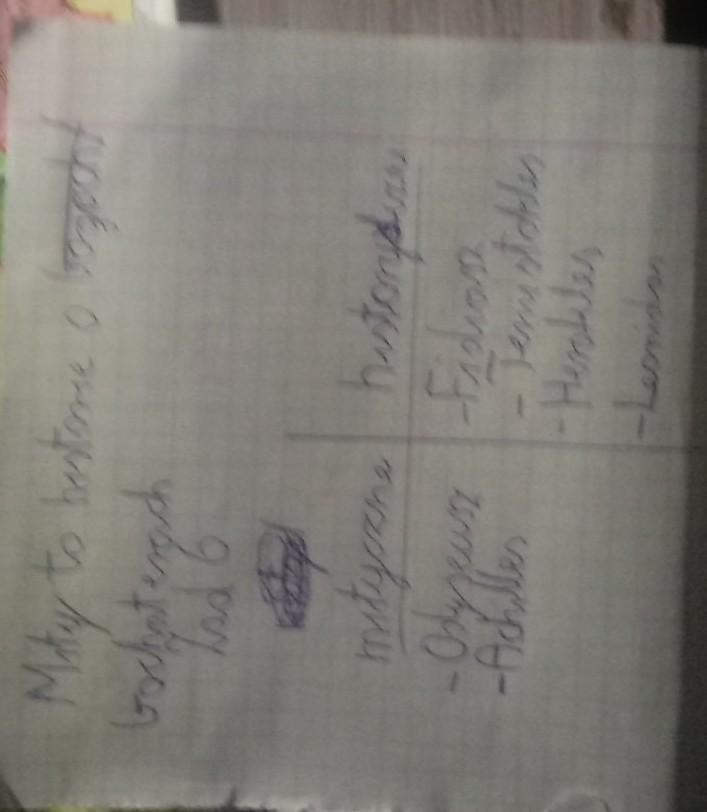 Mity to historie o bogach i
bochaterach
zad 6
mityczne historyczne
- Odyseusz - Fidiasz
- Achilles - Temistokles
- Herakles
- Leonidas